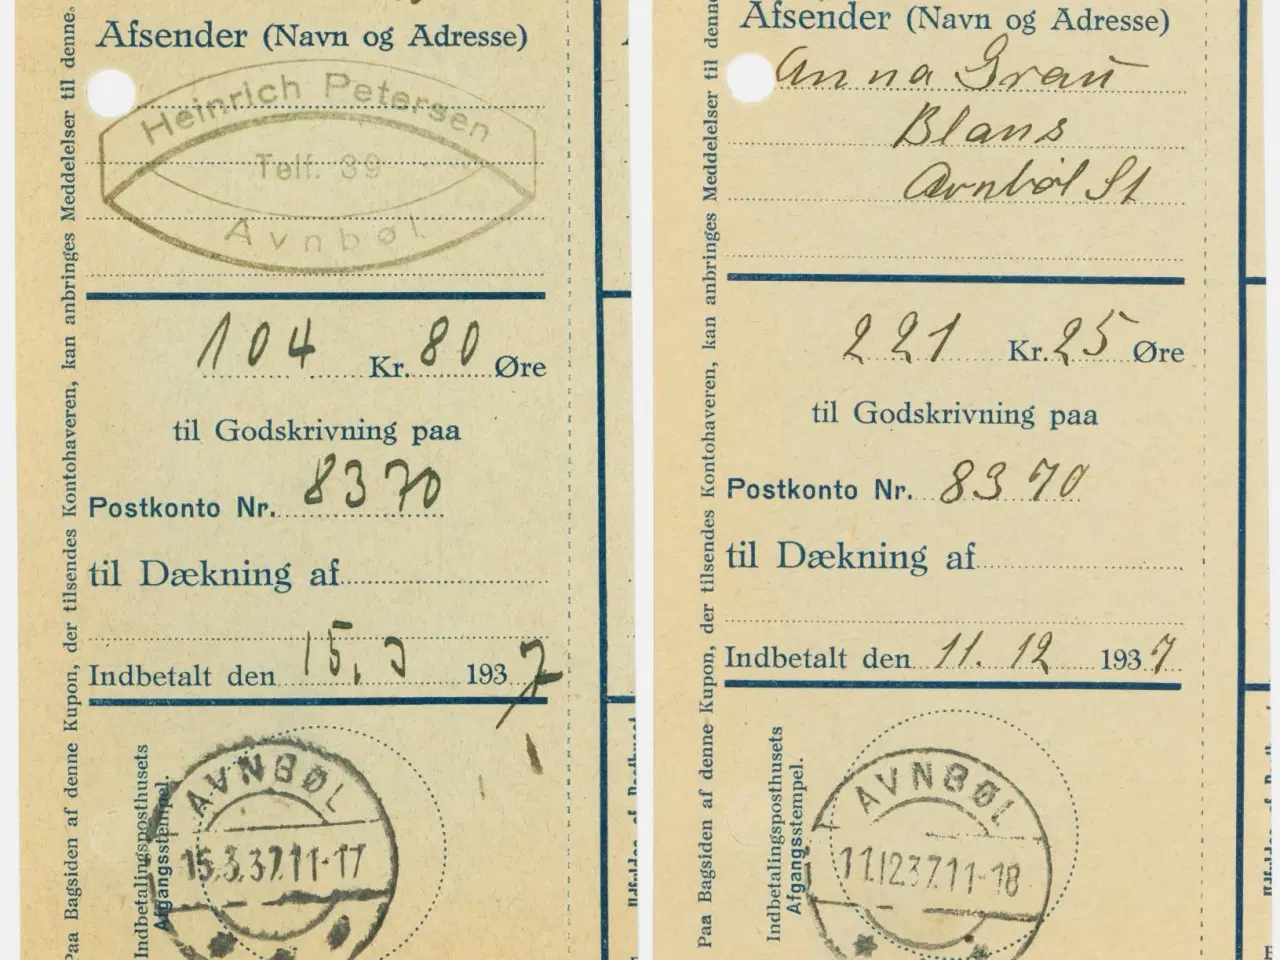 Afsender (Navn og Adresse)
Heinrich Petersen
Telf. 39
Avnbøl
104 Kr. 80 Øre
til Godskrivning paa
Postkonto Nr. 8370
til Dækning af
Indbetalt den 15. 3 1937
Indbetalingsposthusets
Afgangsstempel.
AVNBØL
15.3.37.11-17
Paa Bagsiden af denne Kupon, der tilsendes Kontohaveren, kan anbringes Meddelelser til denne.
Afsender (Navn og Adresse)
Anna Grau
Blans
Avnbøl St
221 Kr. 25 Øre
til Godskrivning paa
Postkonto Nr. 8370
til Dækning af
Indbetalt den 11. 12 1937
Indbetalingsposthusets
Afgangsstempel.
AVNBØL
11.12.37.11-18
Paa Bagsiden af denne Kupon, der tilsendes Kontohaveren, kan anbringes Meddelelser til denne